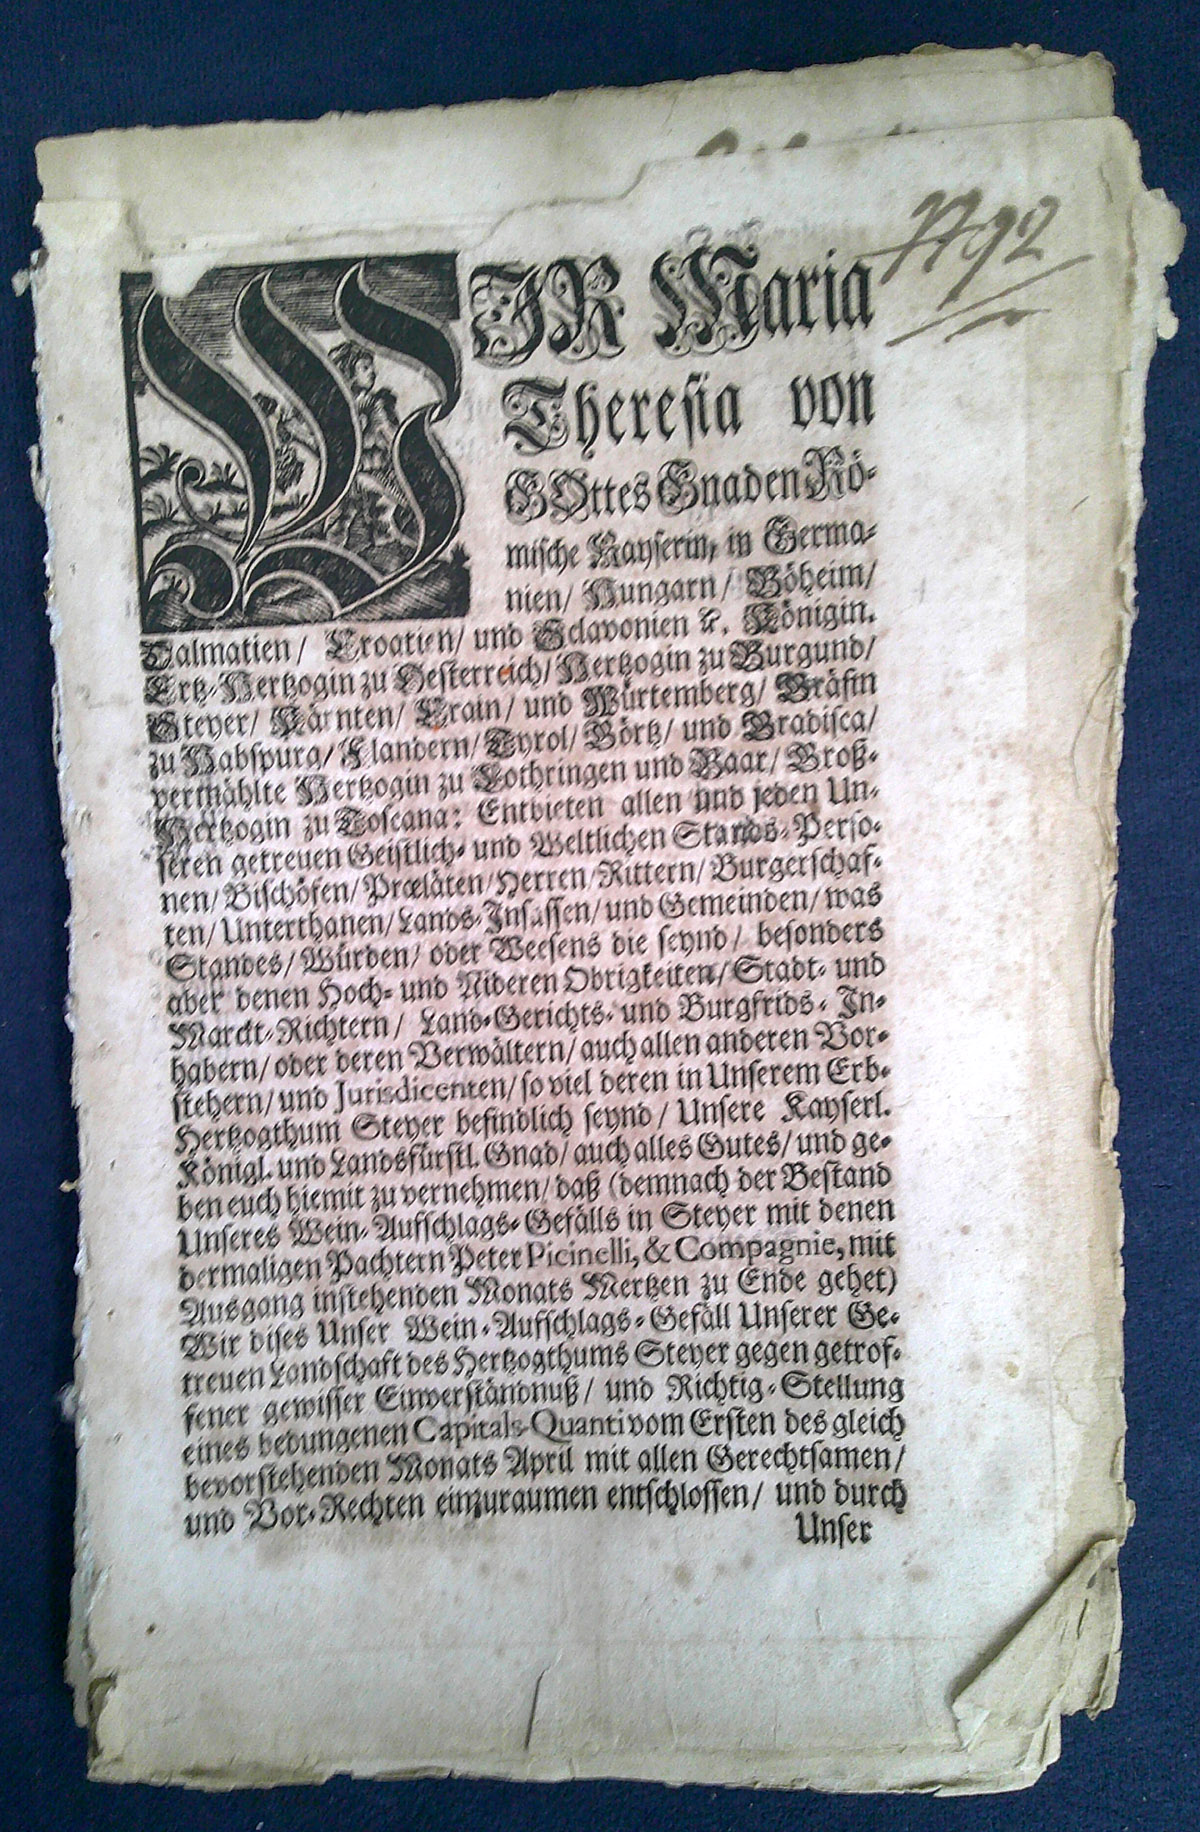 WIR Maria
Theresia von
GOttes Gnaden Rö-
mische Kayserin, in Germa-
nien/ Hungarn/ Böheim/
Dalmatien/ Croatien/ und Sclavonien ꝛc. Königin.
Ertz-Hertzogin zu Oesterreich/ Hertzogin zu Burgund/
Steyer/ Kärnten/ Crain/ und Würtemberg/ Gräfin
zu Habspurg/ Flandern/ Tyrol/ Görtz/ und Gradisca/
vermählte Hertzogin zu Lothringen und Baar/ Groß-
Hertzogin zu Toscana: Entbieten allen und jeden Un-
seren getreuen Geistlich- und Weltlichen Stands-Perso-
nen/ Bischöfen/ Prælaten/ Herren/ Rittern/ Burgerschaf-
ten/ Unterthanen/ Lands-Insassen/ und Gemeinden/ was
Standes/ Würden/ oder Weesens die seynd/ besonders
aber denen Hoch- und Nideren Obrigkeiten/ Stadt- und
Marckt-Richtern/ Land-Gerichts- und Burgfrids-In-
habern/ oder deren Verwältern/ auch allen anderen Vor-
stehern/ und Jurisdicenten/ so viel deren in Unserem Erb-
Hertzogthum Steyer befindlich seynd/ Unsere Kayserl.
Königl. und Landsfürstl. Gnad/ auch alles Gutes/ und ge-
ben euch hiemit zu vernehmen/ daß (demnach der Bestand
Unseres Wein-Aufschlags-Gefälls in Steyer mit denen
dermaligen Pachtern Peter Picinelli, & Compagnie, mit
Ausgang instehenden Monats Mertzen zu Ende gehet)
Wir dises Unser Wein-Aufschlags-Gefäll Unserer Ge-
treuen Landschaft des Hertzogthums Steyer gegen getrof-
fener gewisser Einverständnuß/ und Richtig-Stellung
eines bedungenen Capitals-Quanti vom Ersten des gleich
bevorstehenden Monats April mit allen Gerechtsamen/
und Vor-Rechten einzuraumen entschlossen/ und durch
Unser